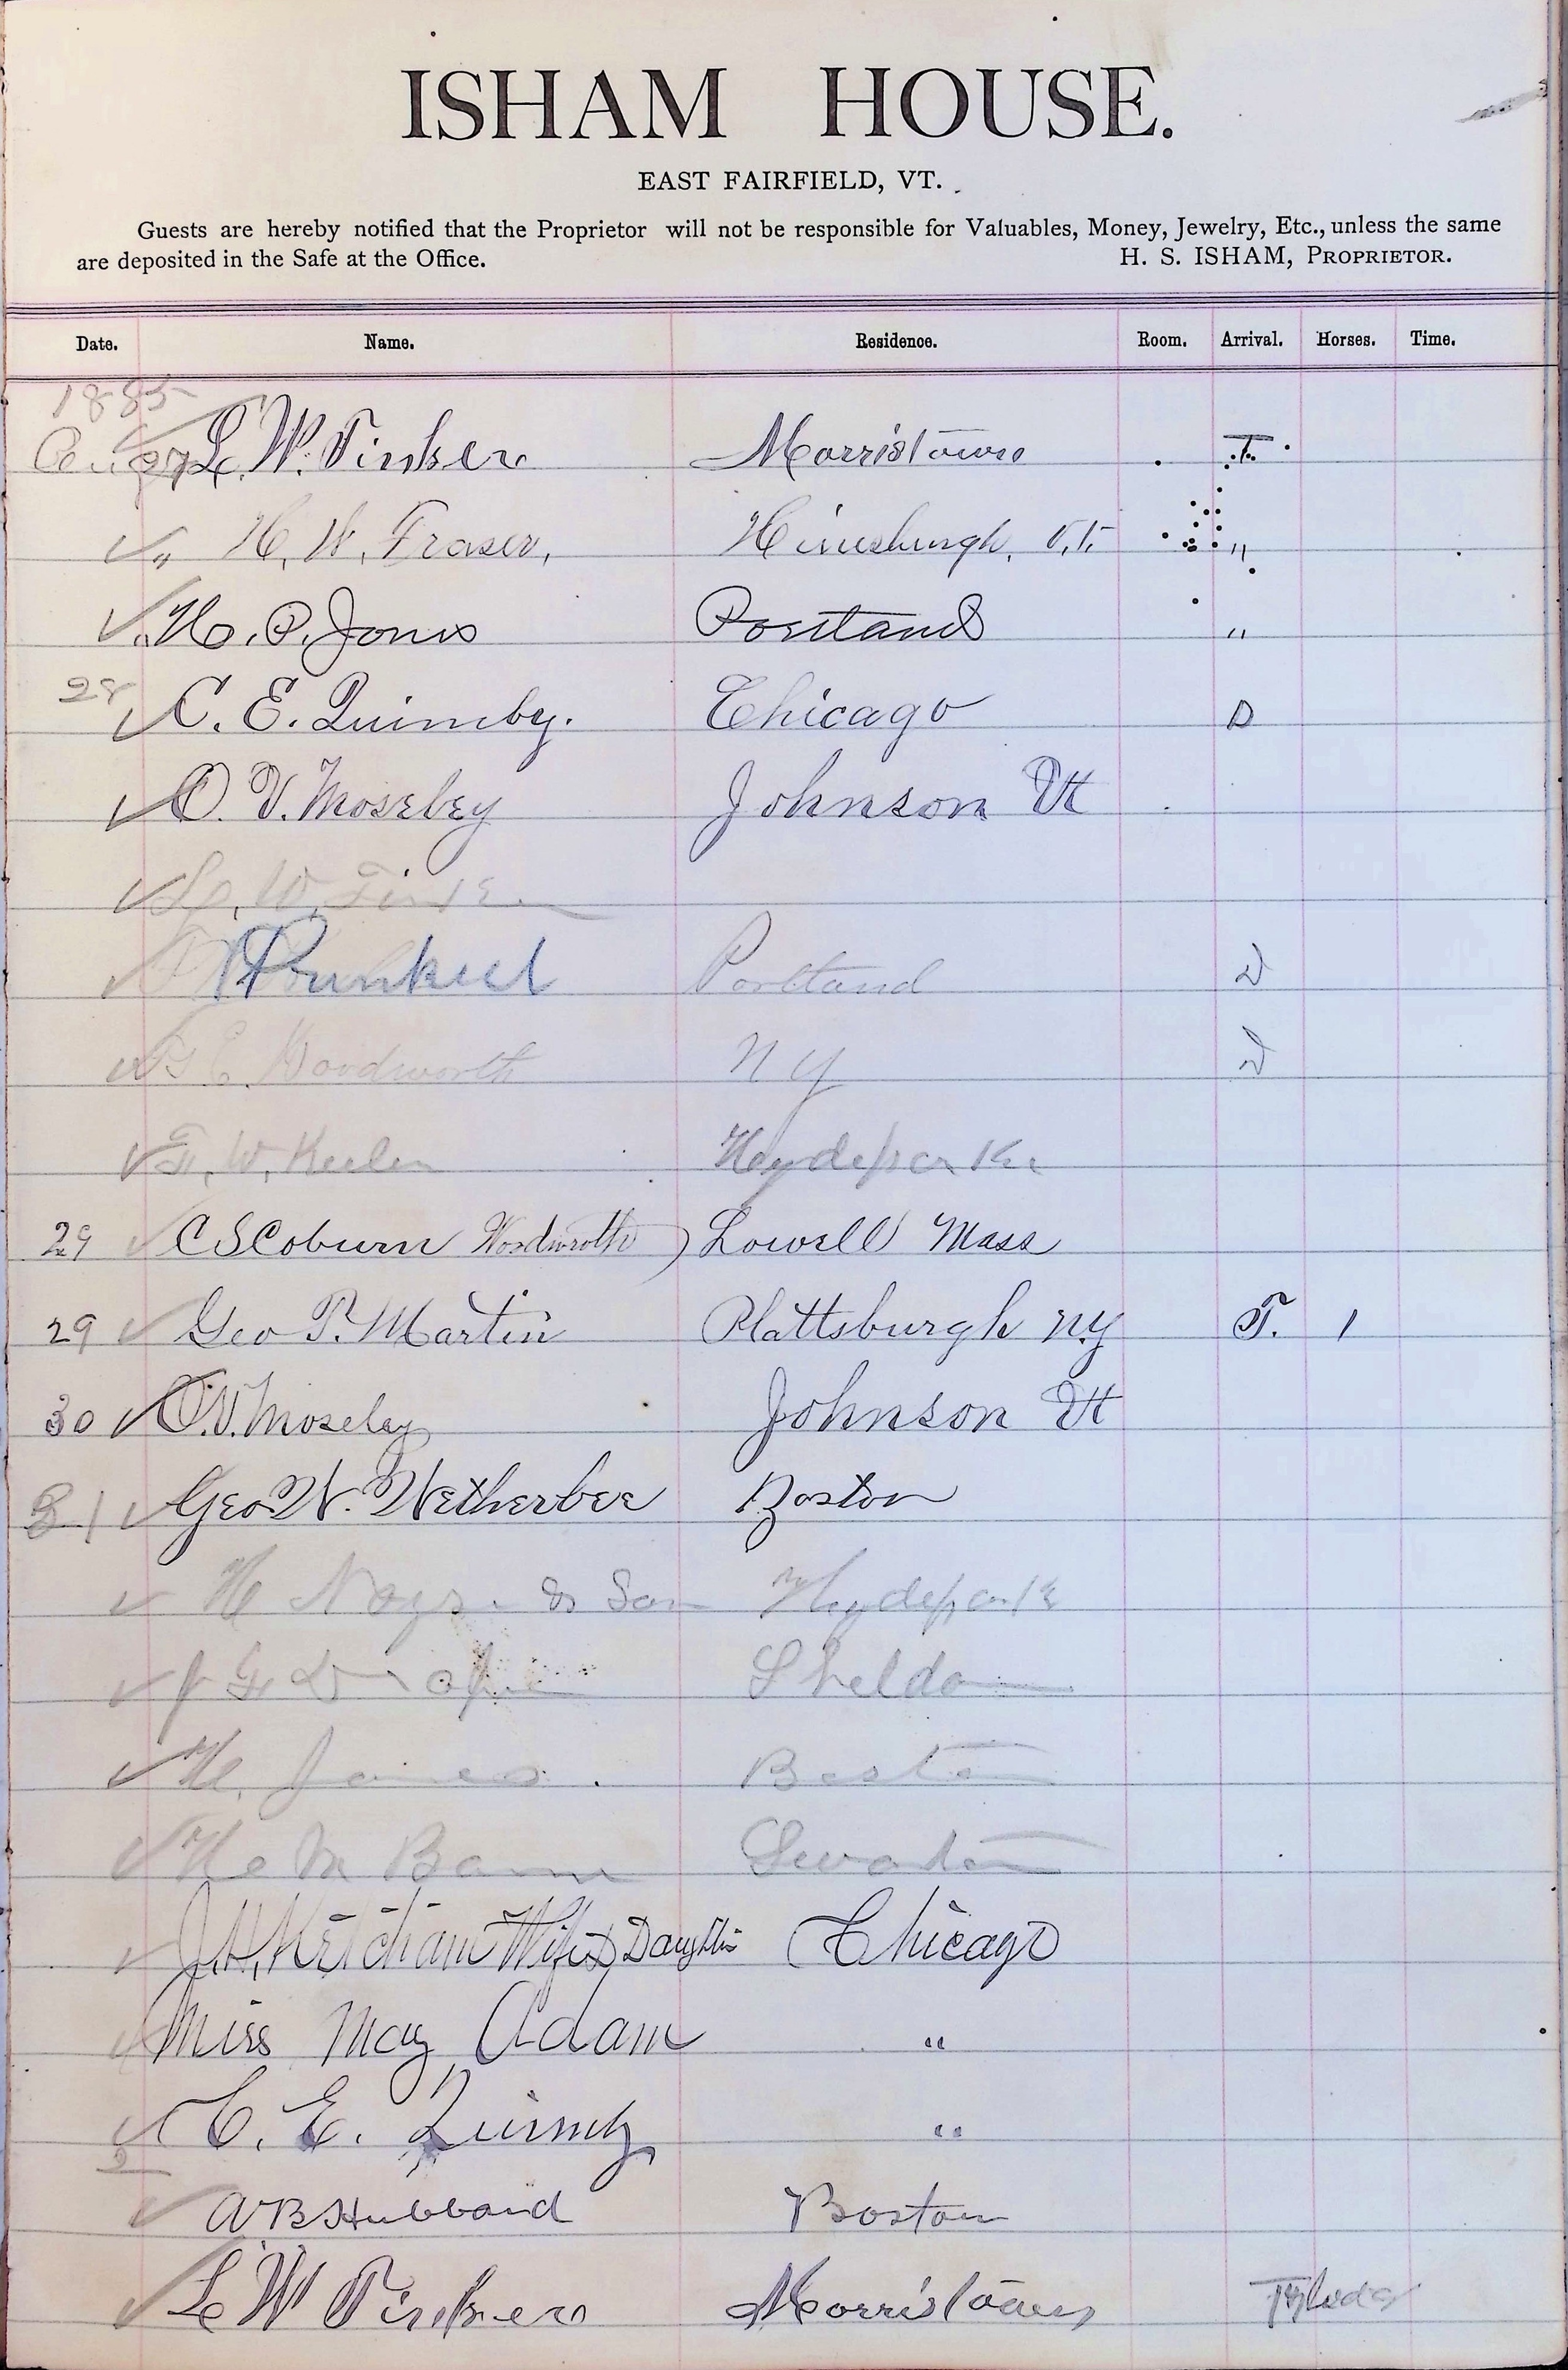 ISHAM HOUSE.
EAST FAIRFIELD, VT.
Guests are hereby notified that the Proprietor will not be responsible for Valuables, Money, Jewelry, Etc., unless the same
are deposited in the Safe at the Office. H. S. ISHAM, PROPRIETOR.
Date. Name. Residence. Room. Arrival. Horses. Time.
1885
L. W. Tinker Morristown T.
" H. W. Fraser, Hinesburgh, V.t. "
" H. P. Jones Portland "
28 C. E. Quimby. Chicago D
O. V. Moseley Johnson Vt
L. W. Tinker
Portland D
E. Woodworth N Y D
F. W. Keeler Hydepark
29 C S Coburn Woodworth) Lowell Mass
29 Geo T. Martin Plattsburgh N.Y T. 1
30 O. V. Moseley Johnson Vt
31 Geo W. Wetherbee Boston
H Noyse & Son Hydepark
J G Sheldon
H. James. Boston
Swanton
J. H. Ketcham Wife & Daughter Chicago
Miss May Adam "
C. E. Quimby "
A B Hubbard Boston
L W Tinker Morristown